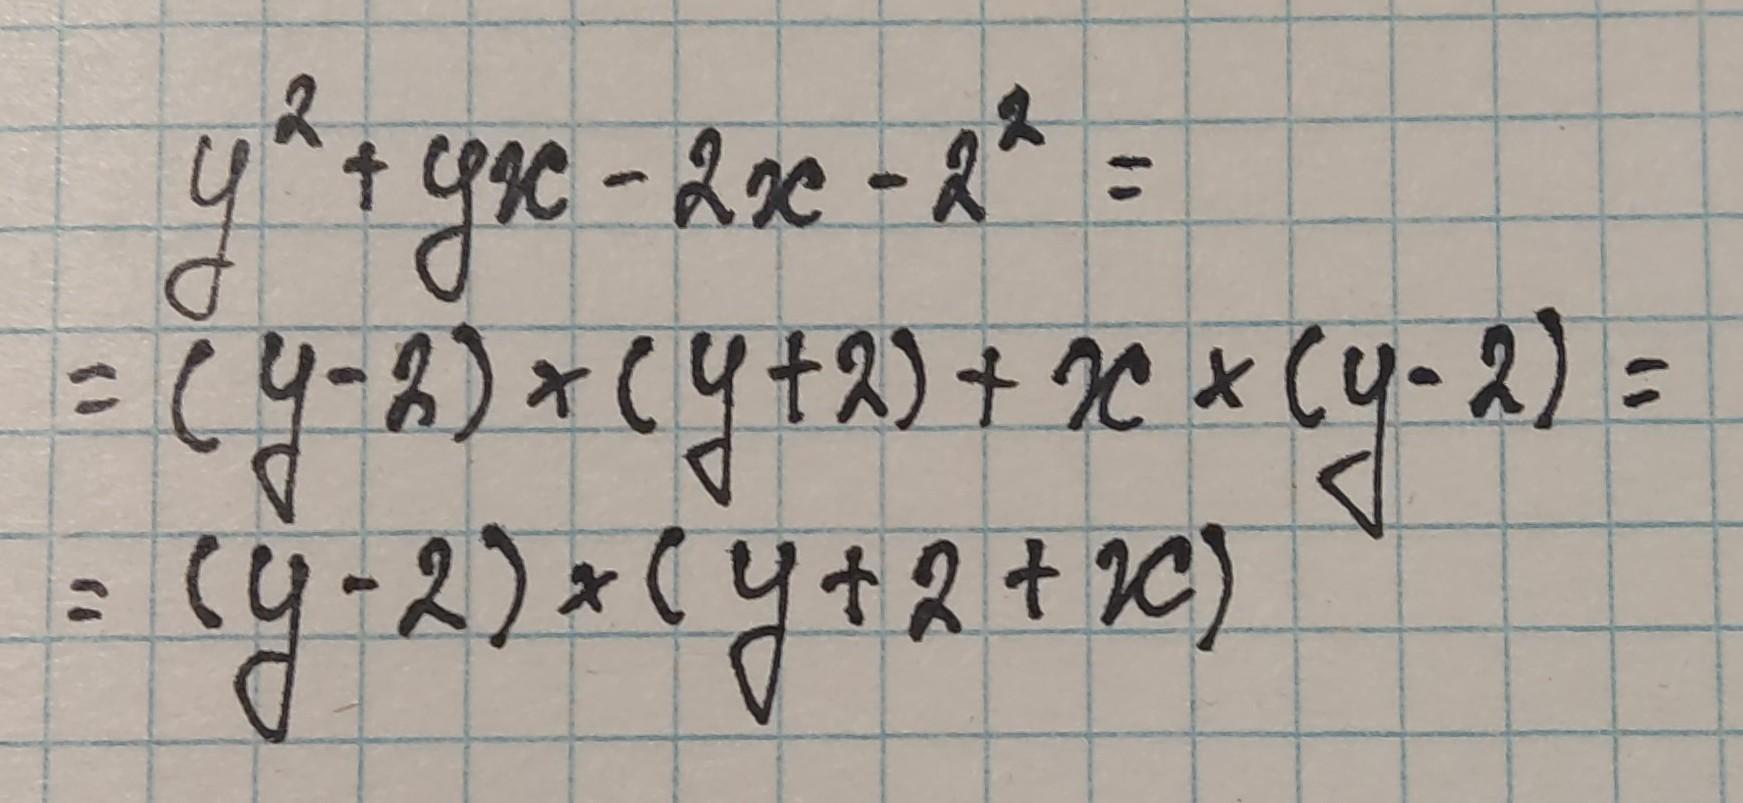 y² + yx - 2x - 2² =
= (y - 2) × (y + 2) + x × (y - 2) =
= (y - 2) × (y + 2 + x)